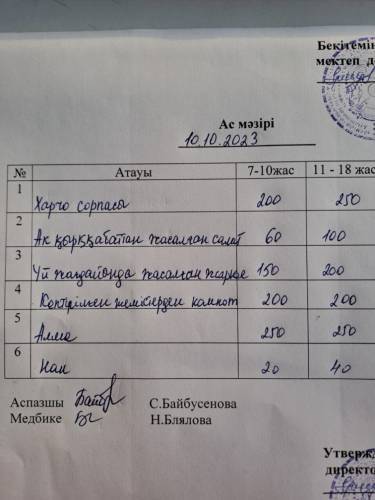 Бекітемін
мектеп д
Ас мәзірі
10.10.2023
№ Атауы 7-10жас 11 - 18 жас
1 Харчо сорпасы 200 250
2 Ақ қырыққабаттан жасалған салат 60 100
3 Үй жағдайында жасалған жаркое 150 200
4 Кептірілген жемістерден компот 200 200
5 Алма 250 250
6 Нан 20 40
Аспазшы С.Байбусенова
Медбике Н.Блялова
Утверж
директо